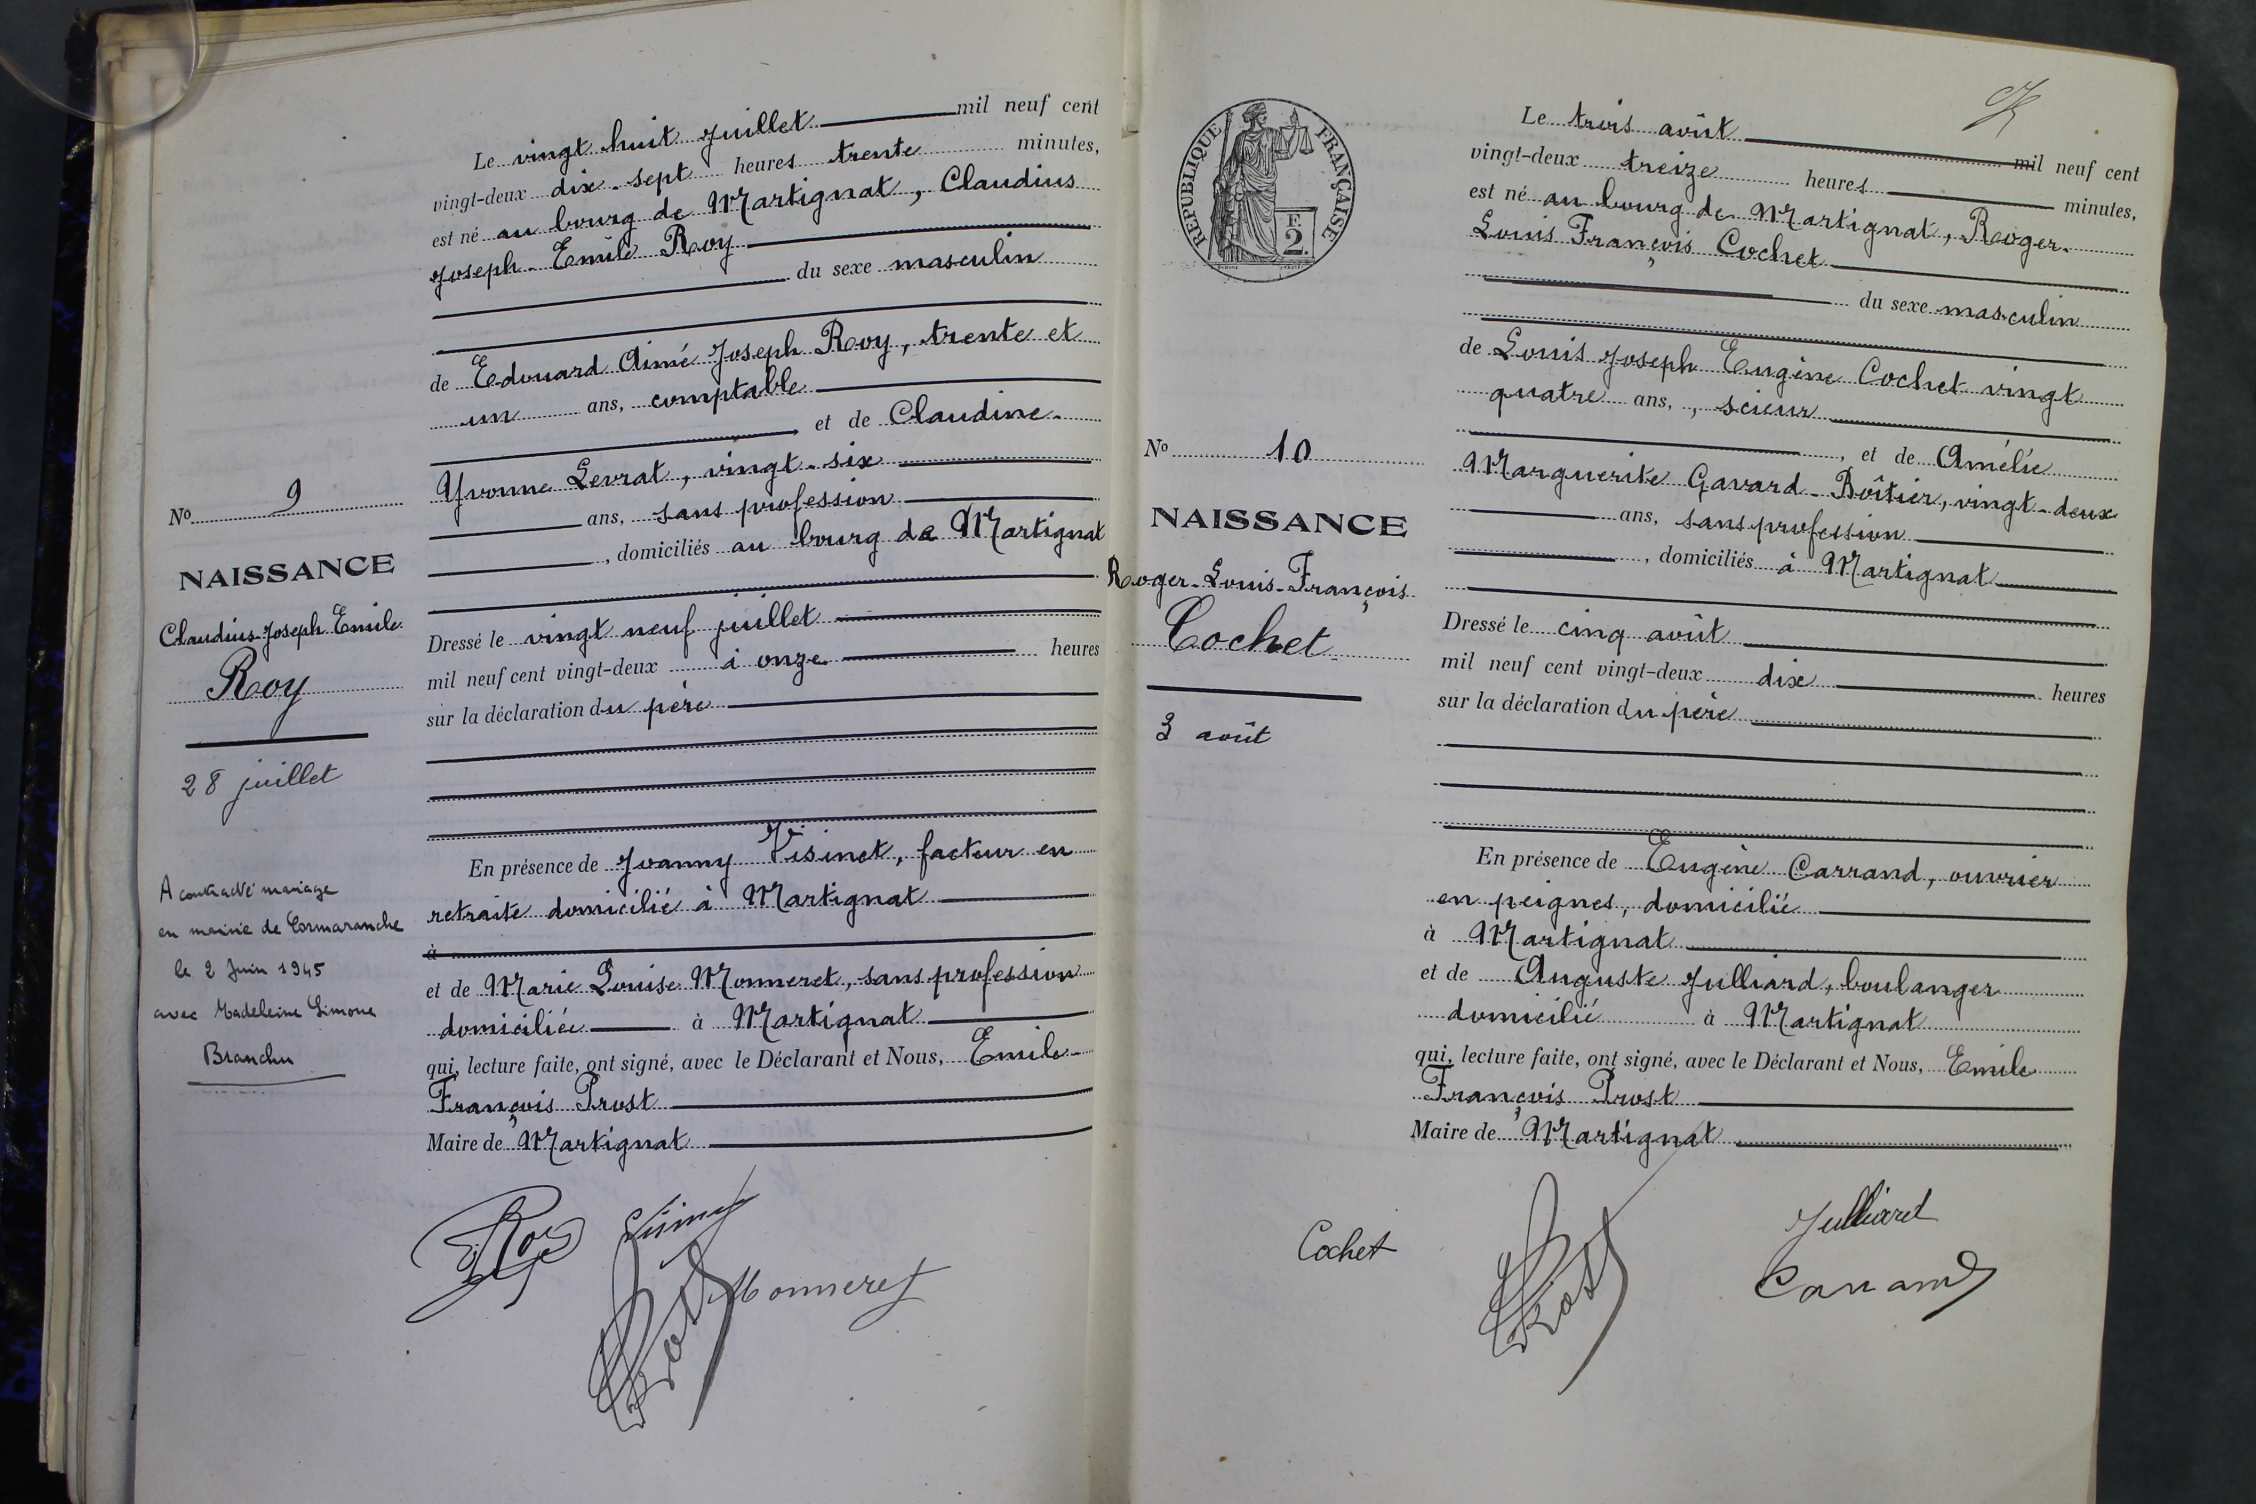 Le vingt huit juillet mil neuf cent
vingt-deux dix-sept heures trente minutes,
est né au bourg de Martignat, Claudius
Joseph-Emile Roy
du sexe masculin
de Edouard Aimé Joseph Roy, trente et
un ans, comptable
et de Claudine-
Yvonne Levrat, vingt-six
ans, sans profession
, domiciliés au bourg de Martignat
Dressé le vingt neuf juillet
mil neuf cent vingt-deux à onze heures
sur la déclaration du père
En présence de Joanny Visinet, facteur en
retraite domicilié à Martignat
à
et de Marie Louise Monneret, sans profession
domiciliée à Martignat
qui, lecture faite, ont signé, avec le Déclarant et Nous, Emile-
François Prost
Maire de Martignat
No 9
NAISSANCE
Claudius-Joseph Emile
Roy
28 juillet
A contracté mariage
en mairie de Cormaranche
le 2 Juin 1945
avec Madeleine Simone
Branchu
Roy
Prost
Monneret
RÉPUBLIQUE FRANÇAISE
E
2
No 10
NAISSANCE
Roger-Louis-François
Cochet
3 août
Le trois août mil neuf cent
vingt-deux treize heures minutes,
est né au bourg de Martignat, Roger-
Louis François Cochet
du sexe masculin
de Louis Joseph Eugène Cochet vingt
quatre ans, , scieur
, et de Amélie
Marguerite Gavard-Boîtier, vingt-deux
ans, sans profession
, domiciliés à Martignat
Dressé le cinq août
mil neuf cent vingt-deux dix heures
sur la déclaration du père
En présence de Eugène Carrand, ouvrier
en peignes, domicilié
à Martignat
et de Auguste Julliard, boulanger
domicilié à Martignat
qui, lecture faite, ont signé, avec le Déclarant et Nous, Emile
François Prost
Maire de Martignat
Cochet
Prost
Julliard
Carrand